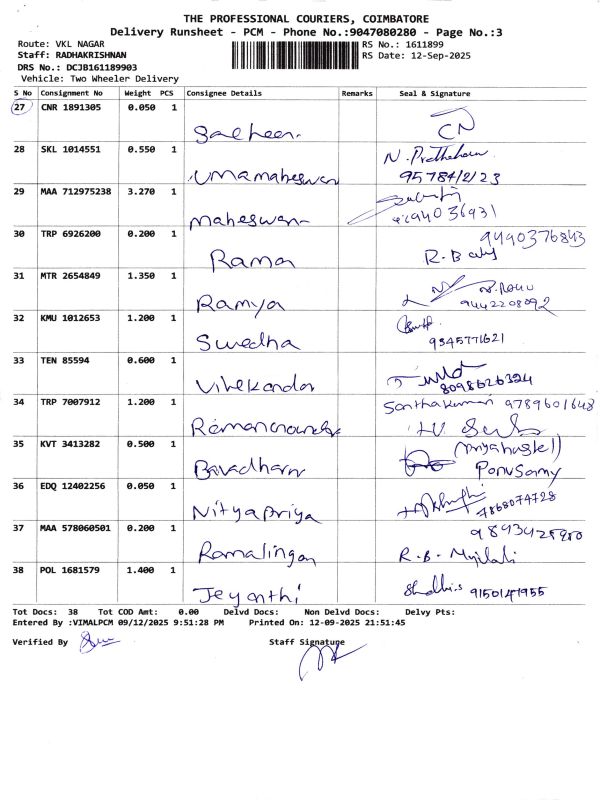 THE PROFESSIONAL COURIERS, COIMBATORE
Delivery Runsheet - PCM - Phone No.:9047080280 - Page No.:3
Route: VKL NAGAR RS No.: 1611899
Staff: RADHAKRISHNAN RS Date: 12-Sep-2025
DRS No.: DCJB161189903
Vehicle: Two Wheeler Delivery
S No Consignment No Weight PCS Consignee Details Remarks Seal & Signature
27 CNR 1891305 0.050 1
CN
28 SKL 1014551 0.550 1
Umamaheswari
29 MAA 712975238 3.270 1
Maheswari
30 TRP 6926200 0.200 1 9490376843
Raman R. Baly
31 MTR 2654849 1.350 1
Ramya 9442208092
32 KMU 1012653 1.200 1
Swedha 9345771621
33 TEN 85594 0.600 1
Vivekandan 8098626324
34 TRP 7007912 1.200 1 Santhakumari 9789601648
35 KVT 3413282 0.500 1
Ponusamy
36 EDQ 12402256 0.050 1
Nityapriya 7868074728
37 MAA 578060501 0.200 1
Ramalingam R.B.
38 POL 1681579 1.400 1
Jeyanthi 9150141955
Tot Docs: 38 Tot COD Amt: 0.00 Delvd Docs: Non Delvd Docs: Delvy Pts:
Entered By :VIMALPCM 09/12/2025 9:51:28 PM Printed On: 12-09-2025 21:51:45
Verified By Staff Signature